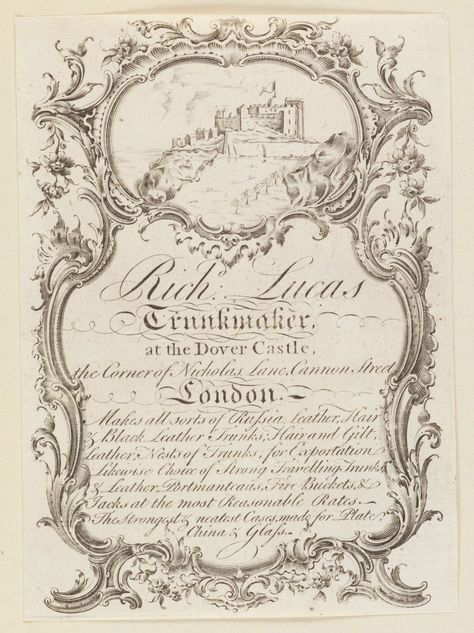 Rich: Lucas
Trunkmaker,
at the Dover Castle,
the Corner of Nicholas Lane, Cannon Street
London. –
Makes all sorts of Russia Leather, Hair
& Black Leather Trunks, Hair and Gilt,
Leather, Nests of Trunks, for Exportation
Likewise Choice of Strong Travelling Trunks
& Leather Portmanteaus, Fire Buckets, &
Jacks at the most Reasonable Rates. –
The Strongest & neatest Cases, made for Plate,
China & Glaſs. –